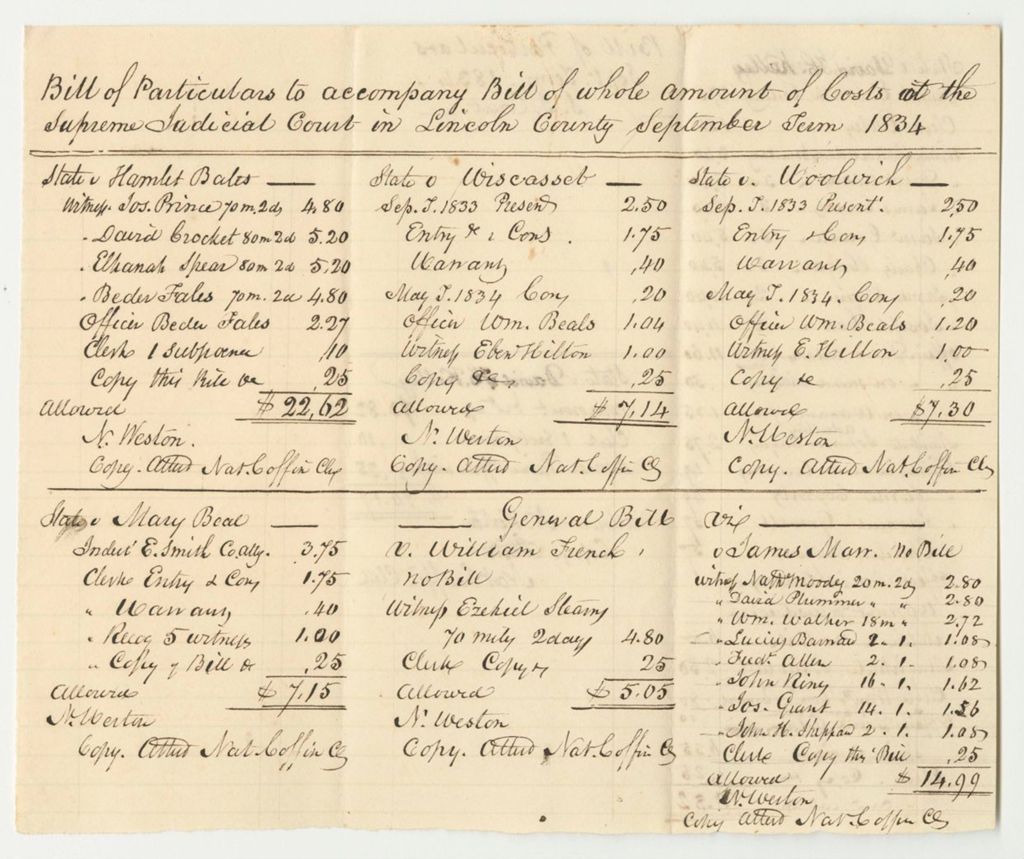 Bill of Particulars to accompany Bill of whole amount of Costs at the
Supreme Judicial Court in Lincoln County September Term 1834
State v Hamlet Bates
Witness Jos. Prince 70 m. 2 ds 4.80
" David Crocket 80 m 2 d 5.20
" Elkanah Spear 80 m 2 d 5,20
" Beder Fales 70 m. 2 d 4.80
Officer Beder Fales 2.27
Clerk 1 subpoena ,10
Copy this Bill &c ,25
Allowed $ 22,62
N. Weston.
Copy. Attest Nat. Coffin Clk
State v Wiscasset
Sep. T. 1833 Present 2.50
Entry & 1 Cons. 1.75
Warrant ,40
May T. 1834 Con ,20
Officer Wm. Beals 1.04
Witness Eben Hilton 1.00
Copy &c ,25
Allowed $ 7,14
N. Weston
Copy. Attest Nat. Coffin Clk
State v. Woolwich
Sep. T. 1833 Present. 2,50
Entry & Con 1.75
Warrant ,40
May T. 1834. Con ,20
Officer Wm. Beals 1.20
Witness E. Hilton 1,00
Copy &c ,25
Allowed $7,30
N. Weston
Copy. Attest Nat. Coffin Clk
State v Mary Beal
Indict E. Smith Co atty. 3.75
Clerks Entry & Con 1.75
" Warrant .40
" Recog 5 witness 1.00
" Copy of Bill &c ,25
Allowed $ 7,15
N. Weston
Copy. Attest Nat. Coffin Clk
General Bill
v. William French,
no Bill
Witness Ezekiel Stearns
70 miles 2 days 4.80
Clerk Copy &c 25
Allowed $ 5.05
N. Weston
Copy. Attest Nat. Coffin Clk
viz
v James Marr. no Bill
Witness Nathl Moody 20 m. 2 d 2.80
" David Plummer " " 2.80
" Wm. Walker 18 m " 2.72
" Lucius Barnard 2 - 1. 1.08
" Fredk. Allen 2. 1. 1.08
" John King 16 - 1. 1.62
" Jos. Grant 14. 1. 1.56
" John H. Sheppard 2 - 1. 1.08
Clerk Copy this Bill ,25
Allowed $ 14.99
N. Weston
Copy Attest Nat. Coffin Clk